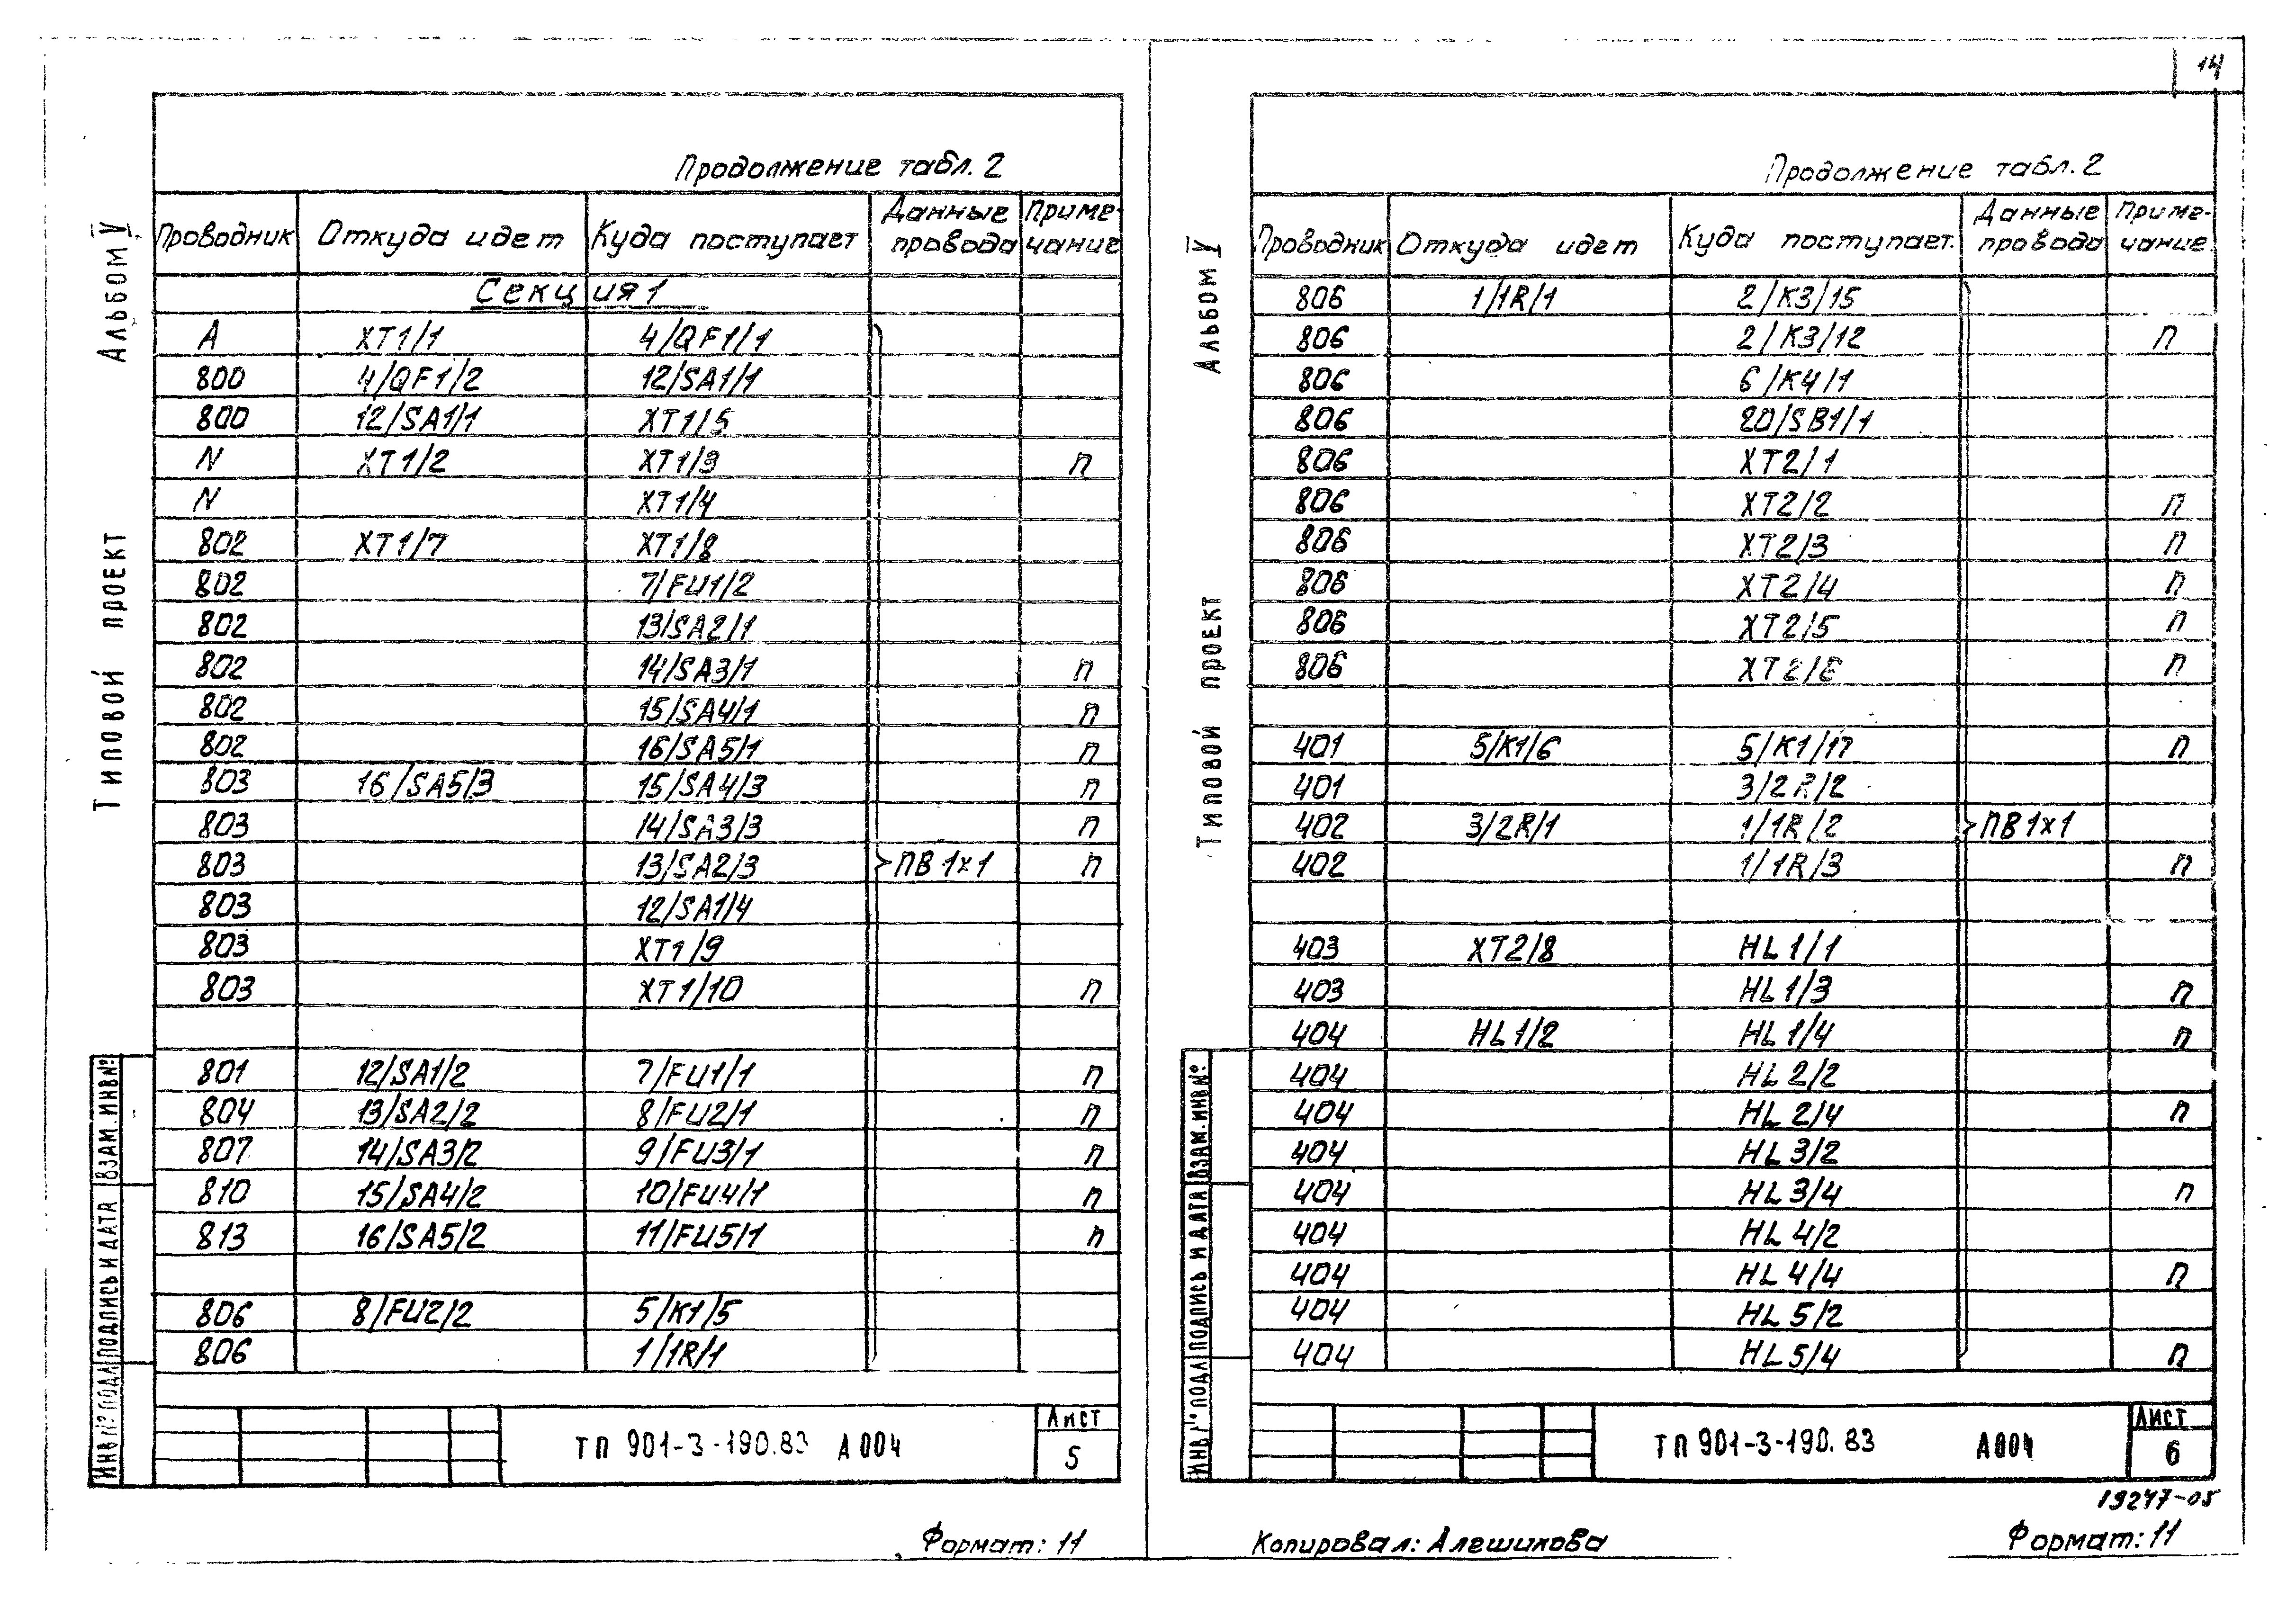 14
Альбом V
Типовой проект
Продолжение табл. 2
Проводник Откуда идет Куда поступает Данные провода Примечание
Секция 1
А XT1/1 4/QF1/1
800 4/QF1/2 12/SA1/1
800 12/SA1/1 XT1/5
N XT1/2 XT1/3 п
N XT1/4
802 XT1/7 XT1/8
802 7/FU1/2
802 13/SA2/1
802 14/SA3/1 п
802 15/SA4/1 п
802 16/SA5/1 п
803 16/SA5/3 15/SA4/3 п
803 14/SA3/3 п
803 13/SA2/3 ПВ 1х1 п
803 12/SA1/4
803 XT1/9
803 XT1/10 п
801 12/SA1/2 7/FU1/1 п
804 13/SA2/2 8/FU2/1 п
807 14/SA3/2 9/FU3/1 п
810 15/SA4/2 10/FU4/1 п
813 16/SA5/2 11/FU5/1 п
806 8/FU2/2 5/K1/5
806 1/1R/1
ИНВ № ПОДЛ ПОДПИСЬ И ДАТА ВЗАМ. ИНВ №
ТП 901-3-190.83 А004
Лист
5
Формат: 11
Альбом V
Типовой проект
Продолжение табл. 2
Проводник Откуда идет Куда поступает. Данные провода Примечание
806 1/1R/1 2/K3/15
806 2/K3/12 п
806 6/K4/1
806 20/SB1/1
806 XT2/1
806 XT2/2 п
806 XT2/3 п
806 XT2/4 п
806 XT2/5 п
806 XT2/6 п
401 5/K1/6 5/K1/17 п
401 3/2R/2
402 3/2R/1 1/1R/2 ПВ 1х1
402 1/1R/3 п
403 XT2/8 HL1/1
403 HL1/3 п
404 HL1/2 HL1/4 п
404 HL2/2
404 HL2/4 п
404 HL3/2
404 HL3/4 п
404 HL4/2
404 HL4/4 п
404 HL5/2
404 HL5/4 п
ИНВ № ПОДЛ ПОДПИСЬ И ДАТА ВЗАМ. ИНВ №
ТП 901-3-190.83 А004
Лист
6
19247-05
Копировал: Алешикова
Формат: 11